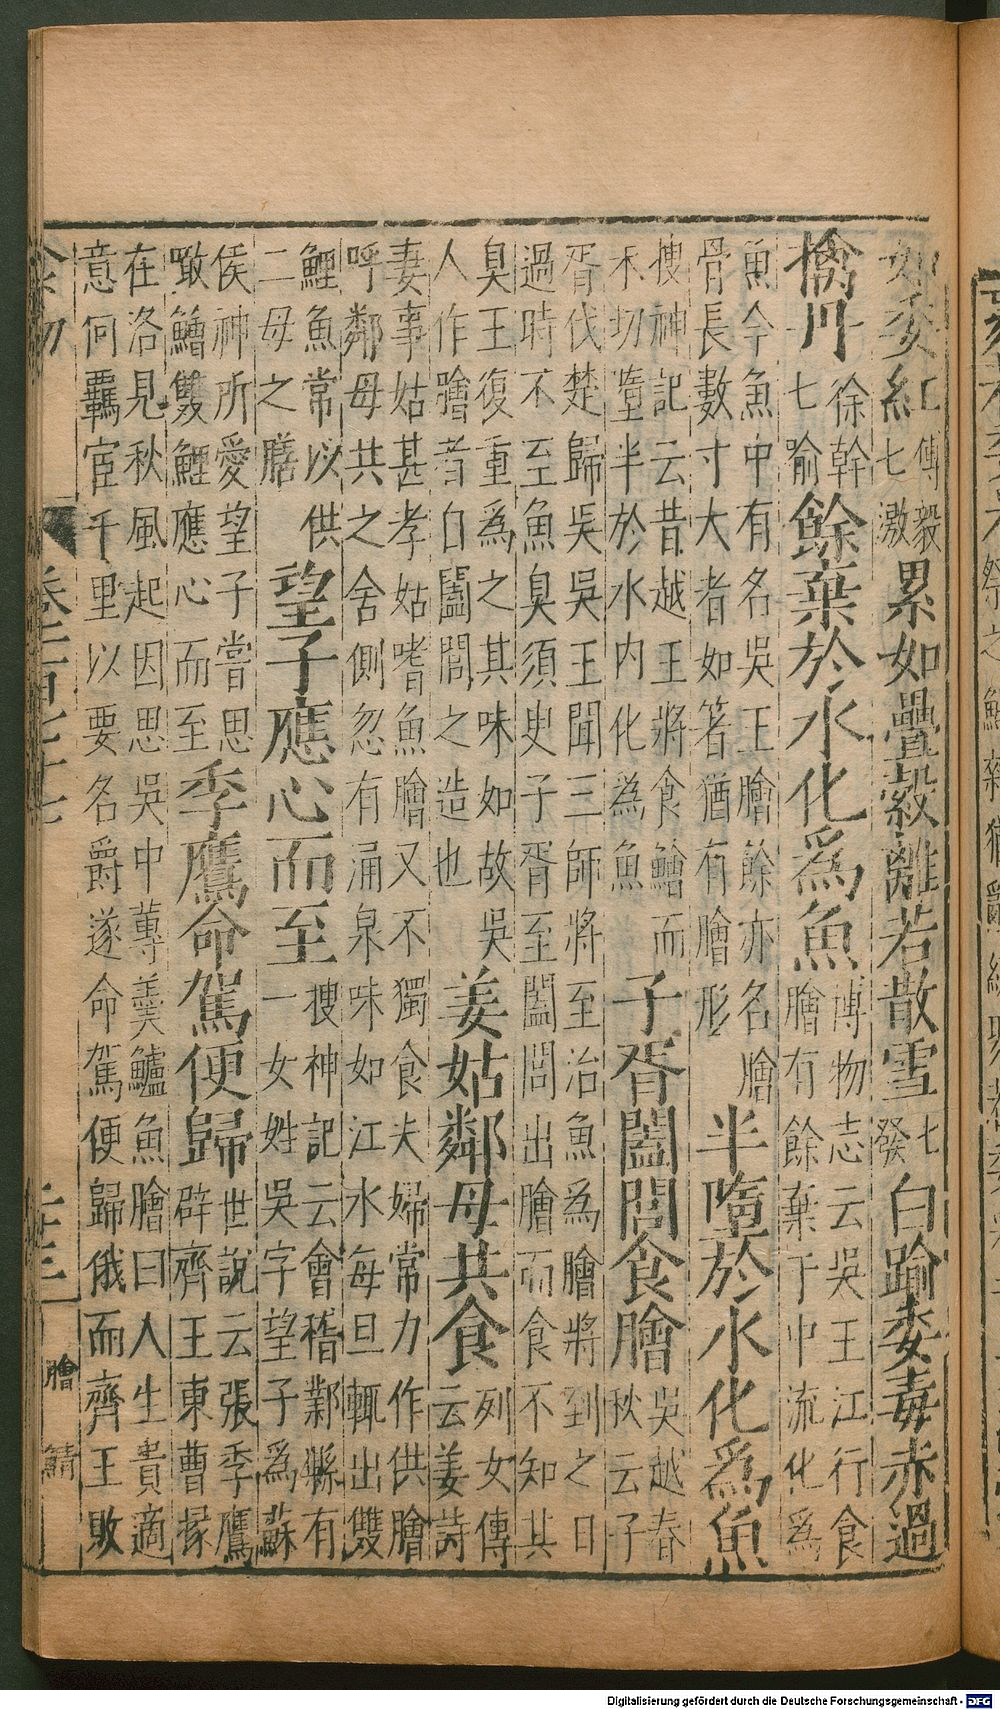 如委紅
傅毅
七激
累如疊縠離若散雪
七
發
白踰委毒赤過
擒刌
徐幹
七喻
餘棄於水化爲魚
博物志云吳王江行食
膾有餘棄于中流化為
魚今魚中有名吳王膾餘亦名膾
骨長數寸大者如箸猶有膾形
半墮於水化爲魚
搜神記云昔越王將食鱠而
不切墮半於水內化為魚
子胥闔閭食膾
吳越春
秋云子
胥伐楚歸吳吳王聞三師將至治魚為膾將到之日
過時不至魚臭須臾子胥至闔閭出膾而食不知其
臭王復重為之其味如故吳
人作膾者自闔閭之造也
姜姑鄰母共食
列女傳
云姜詩
妻事姑甚孝姑嗜魚膾又不獨食夫婦常力作供膾
呼鄰母共之舍側忽有涌泉味如江水每旦輒出雙
鯉魚常以供
二母之膳
望子應心而至
搜神記云會稽鄞縣有
一女姓吳字望子為蘇
侯神所愛望子嘗思
噉鱠雙鯉應心而至
季鷹命駕便歸
世說云張季鷹
辟齊王東曹掾
在洛見秋風起因思吳中蓴羹鱸魚膾曰人生貴適
意何羈宦千里以要名爵遂命駕便歸俄而齊王敗
膾
鯖
Digitalisierung gefördert durch die Deutsche Forschungsgemeinschaft - DFG